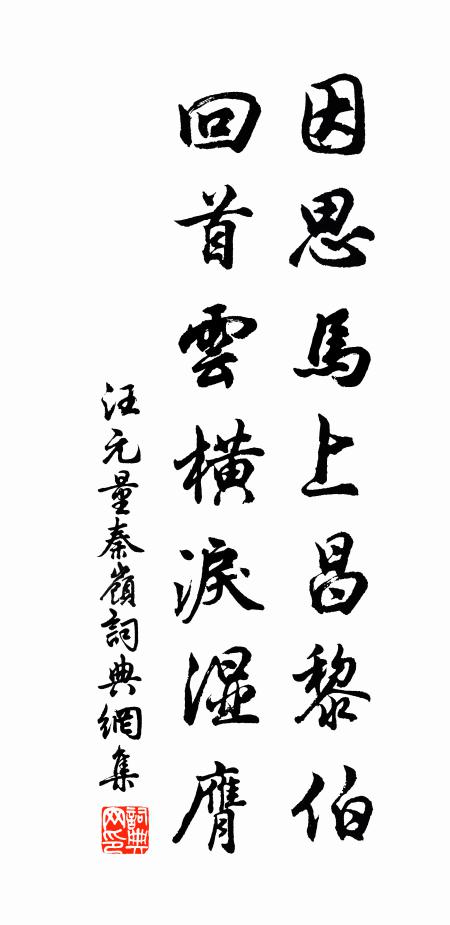 因思馬上昌黎伯
回首雲橫淚濕膺
汪元量秦嶺詞典網集
詞典網印